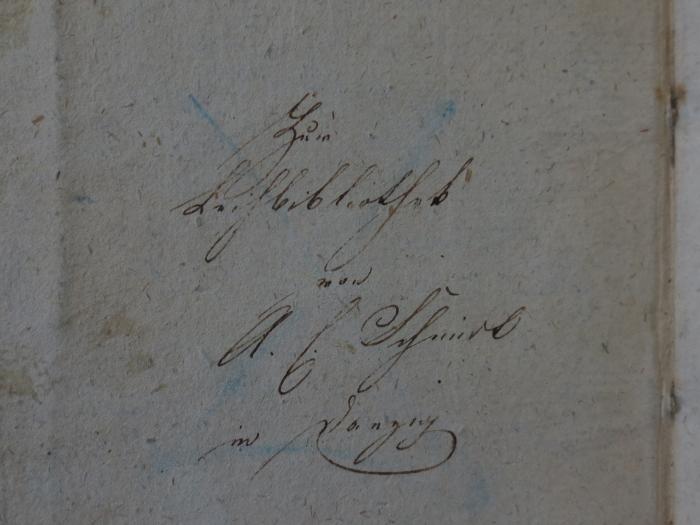 Zur
Leihbibliothek
von
A. E. Schmidt
in Danzig